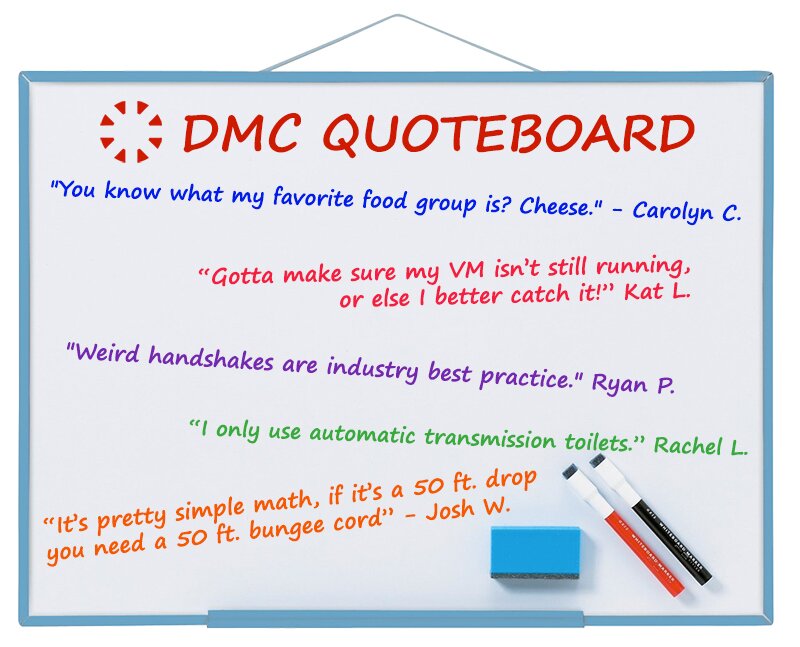 DMC QUOTEBOARD
"You know what my favorite food group is? Cheese." - Carolyn C.
“Gotta make sure my VM isn’t still running,
or else I better catch it!” Kat L.
"Weird handshakes are industry best practice." Ryan P.
“I only use automatic transmission toilets.” Rachel L.
“It’s pretty simple math, if it’s a 50 ft. drop
you need a 50 ft. bungee cord” - Josh W.
WHITEBOARD MARKER
WHITEBOARD MARKER